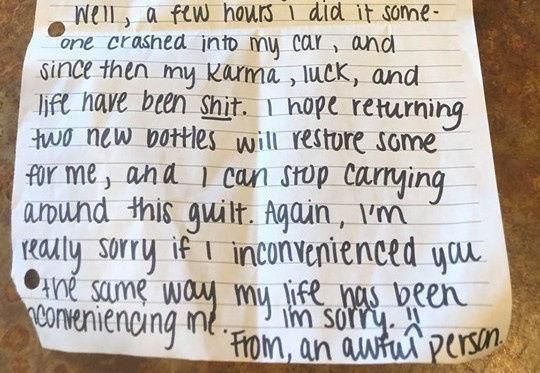 Well, a few hours i did it some-
one crashed into my car, and
since then my karma, luck, and
life have been shit. I hope returning
two new bottles will restore some
for me, and I can stop carrying
around this guilt. Again, I'm
really sorry if I inconvenienced you
the same way my life has been
nconveniencing me. im sorry. !!
From, an awful person.